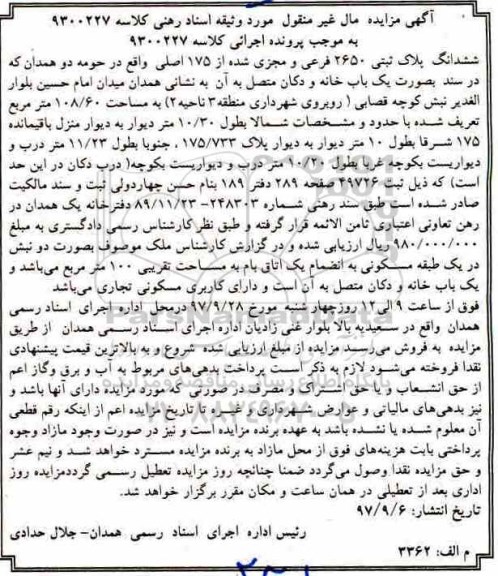 آگهی مزایده  مال غیر منقول  مورد وثیقه اسناد رهنی کلاسه ۹۳۰۰۲۲۷
به موجب پرونده اجرائی کلاسه ۹۳۰۰۲۲۷
ششدانگ  پلاک ثبتی ۲۶۵۰ فرعی و مجزی شده از ۱۷۵ اصلی  واقع در حومه دو همدان که
در سند  بصورت یک باب خانه و دکان متصل به آن  به نشانی همدان میدان امام حسین بلوار
الغدیر نبش کوچه قصابی ( روبروی شهرداری منطقه۳ ناحیه۲) به مساحت ۱۰۸/۶۰ متر مربع
تعریف شده با حدود و مشخصات شمالا بطول ۱۰/۳۰ متر دیوار به دیوار منزل باقیمانده
۱۷۵ شرقا بطول ۱۰ متر دیوار به دیوار پلاک ۱۷۵/۷۳۳ ، جنوبا بطول ۱۱/۲۳ متر درب و
دیواریست بکوچه غربا بطول ۱۰/۲۰ متر درب و دیواریست بکوچه( درب دکان در این حد
است) که ذیل ثبت ۴۹۷۲۶ صفحه ۲۸۹ دفتر ۱۸۹ بنام حسن چهاردولی ثبت و سند مالکیت
صادر شده است طبق سند رهنی شماره ۲۴۸۳۰۳- ۸۹/۱۱/۲۳ دفترخانه یک همدان در
رهن تعاونی اعتباری ثامن الائمه قرار گرفته و طبق نظر کارشناس رسمی دادگستری به مبلغ
۹۸۰/۰۰۰/۰۰۰ ریال ارزیابی شده و در گزارش کارشناس ملک موصوف بصورت دو نبش
در یک طبقه مسکونی به انضمام یک اتاق بام به مساحت تقریبی ۱۰۰ متر مربع می‌باشد و
یک باب خانه و دکان متصل به آن است و دارای کاربری مسکونی تجاری می‌باشد
فوق از ساعت ۹ الی ۱۲ روزچهارشنبه مورخ ۹۷/۹/۲۸ درمحل اداره اجرای  اسناد رسمی
همدان  واقع در سعیدیه بالا بلوار غنی زادیان اداره اجرای اسناد رسمی همدان  از طریق
مزایده  به فروش می‌رسد مزایده از مبلغ ارزیابی شده  شروع و به بالاترین قیمت پیشنهادی
نقدا فروخته می‌شود لازم به ذکر است پرداخت بدهی‌های مربوط به آب و برق وگاز اعم
از حق انشعاب و یا حق اشتراک و مصرف در صورتی که مورد مزایده دارای آنها باشد و
نیز بدهی‌های مالیاتی و عوارض شهرداری و غیره تا تاریخ مزایده اعم از اینکه رقم قطعی
آن معلوم شده یا نشده باشد به عهده برنده مزایده است و نیز در صورت وجود مازاد وجوه
پرداختی بابت هزینه‌های فوق از محل مازاد به برنده مزایده مسترد خواهد شد و نیم عشر
و حق مزایده نقدا وصول می‌گردد ضمنا چنانچه روز مزایده تعطیل رسمی گرددمزایده روز
اداری بعد از تعطیلی در همان ساعت و مکان مقرر برگزار خواهد شد.
تاریخ انتشار: ۹۷/۹/۶
رئیس اداره  اجرای  اسناد  رسمی  همدان- جلال حدادی
م الف: ۳۳۶۲